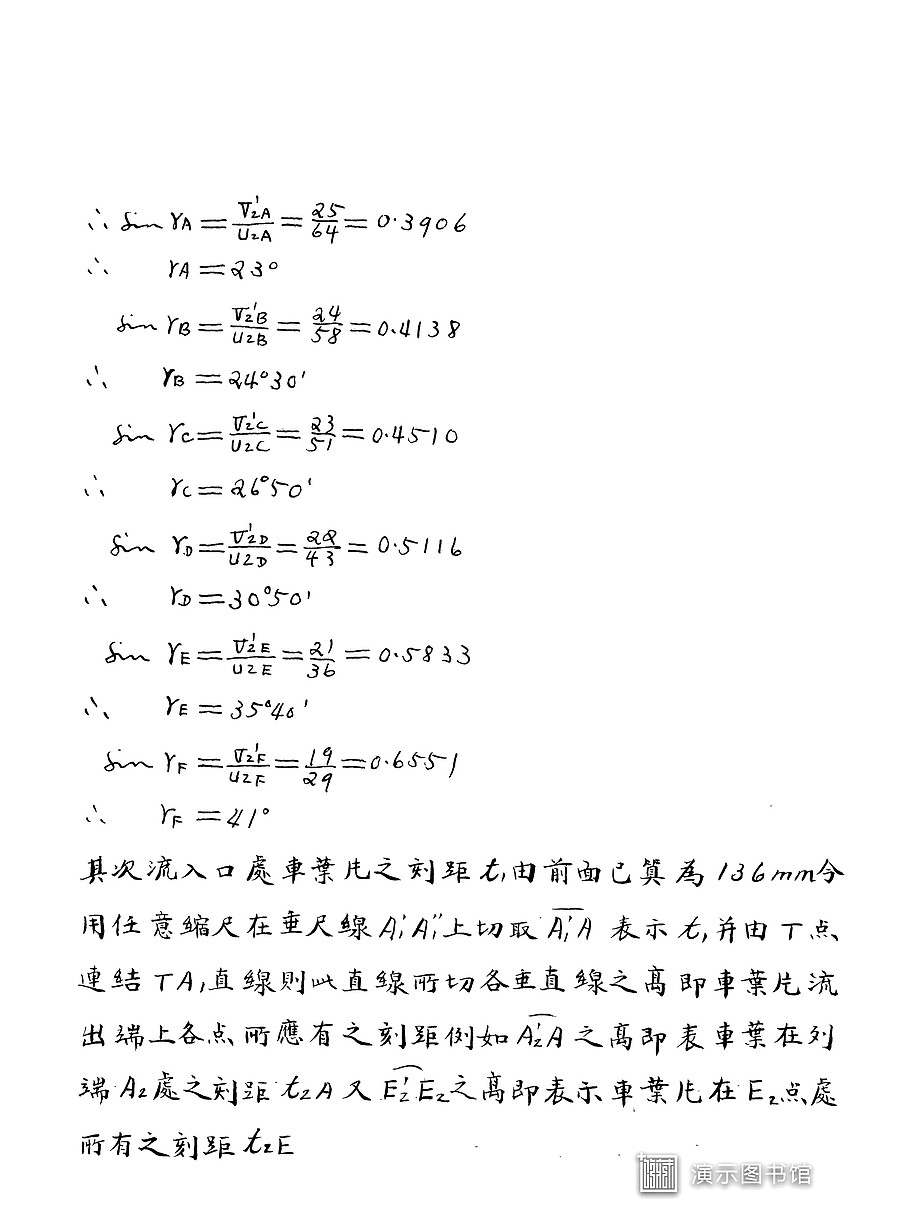 ∴ Sin γA = V'2A/U2A = 25/64 = 0·3906
∴ γA = 23°
Sin γB = V'2B/U2B = 24/58 = 0.4138
∴ γB = 24°30'
Sin γC = V'2C/U2C = 23/51 = 0.4510
∴ γC = 26°50'
Sin γD = V'2D/U2D = 22/43 = 0.5116
∴ γD = 30°50'
Sin γE = V'2E/U2E = 21/36 = 0.5833
∴ γE = 35°40'
Sin γF = V'2F/U2F = 19/29 = 0.6551
∴ γF = 41°
其次流入口處車葉片之刻距t₁由前面已算為136mm今
用任意縮尺在垂尺線A₁'A₁''上切取A₁'A表示t₁并由T点
連結TA₁直線則此直線所切各垂直線之高即車葉片流
出端上各点所應有之刻距例如A₂'A之高即表車葉在列
端A₂處之刻距t₂A又E₂'E₂之高即表示車葉片在E₂点處
所有之刻距t₂E
演示图书馆